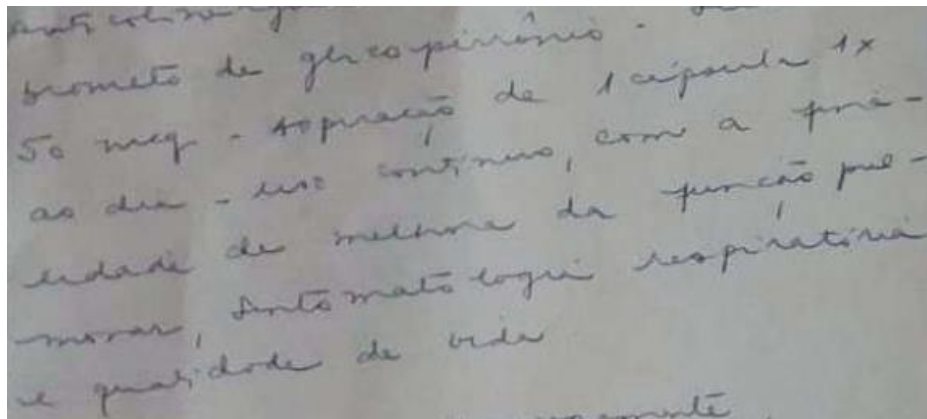 brometo de glicopirrônio -
50 mcg - Aspiração de 1 cápsula 1x
ao dia - uso contínuo, com a fina-
lidade de melhora da função pul-
monar, sintomatologia respiratória
e qualidade de vida